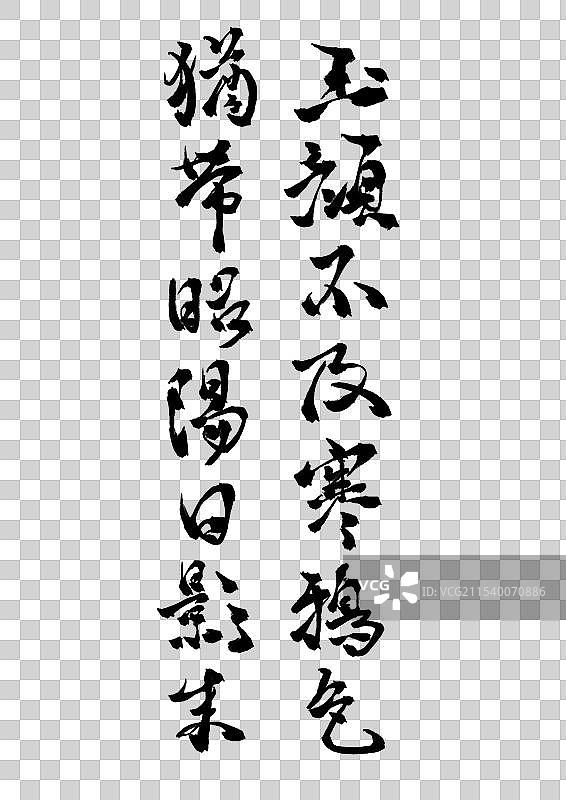 玉顏不及寒鴉色
猶帶昭陽日影来
VCG
ID: VCG211540070886